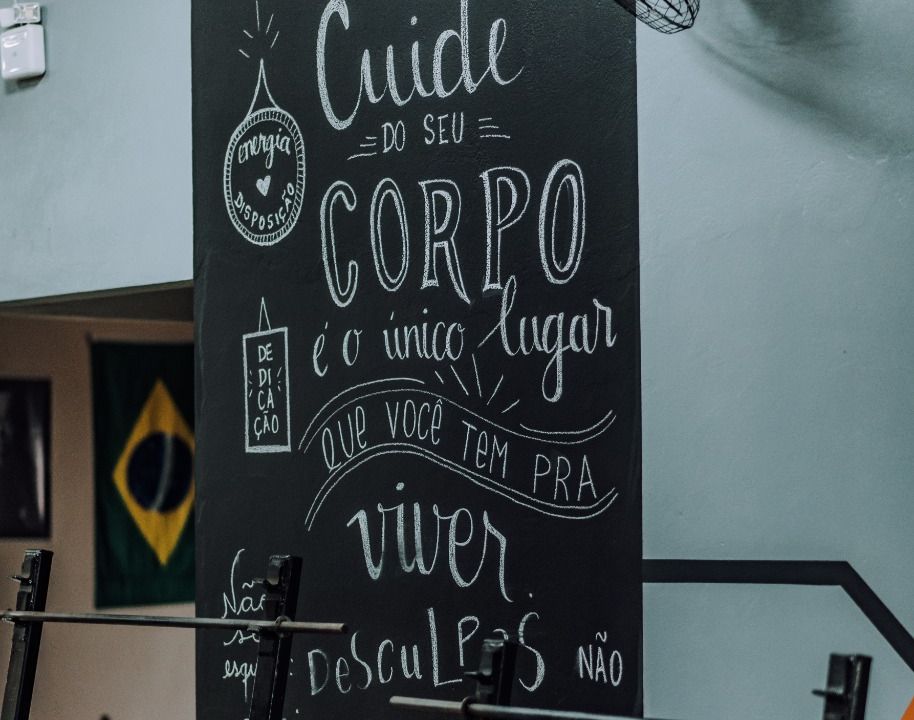 Cuide
DO SEU
CORPO
é o único lugar
QUE VOCÊ TEM PRA
viver
energia
DISPOSIÇÃO
DE
DI
CA
ÇÃO
DESCULPAS NÃO